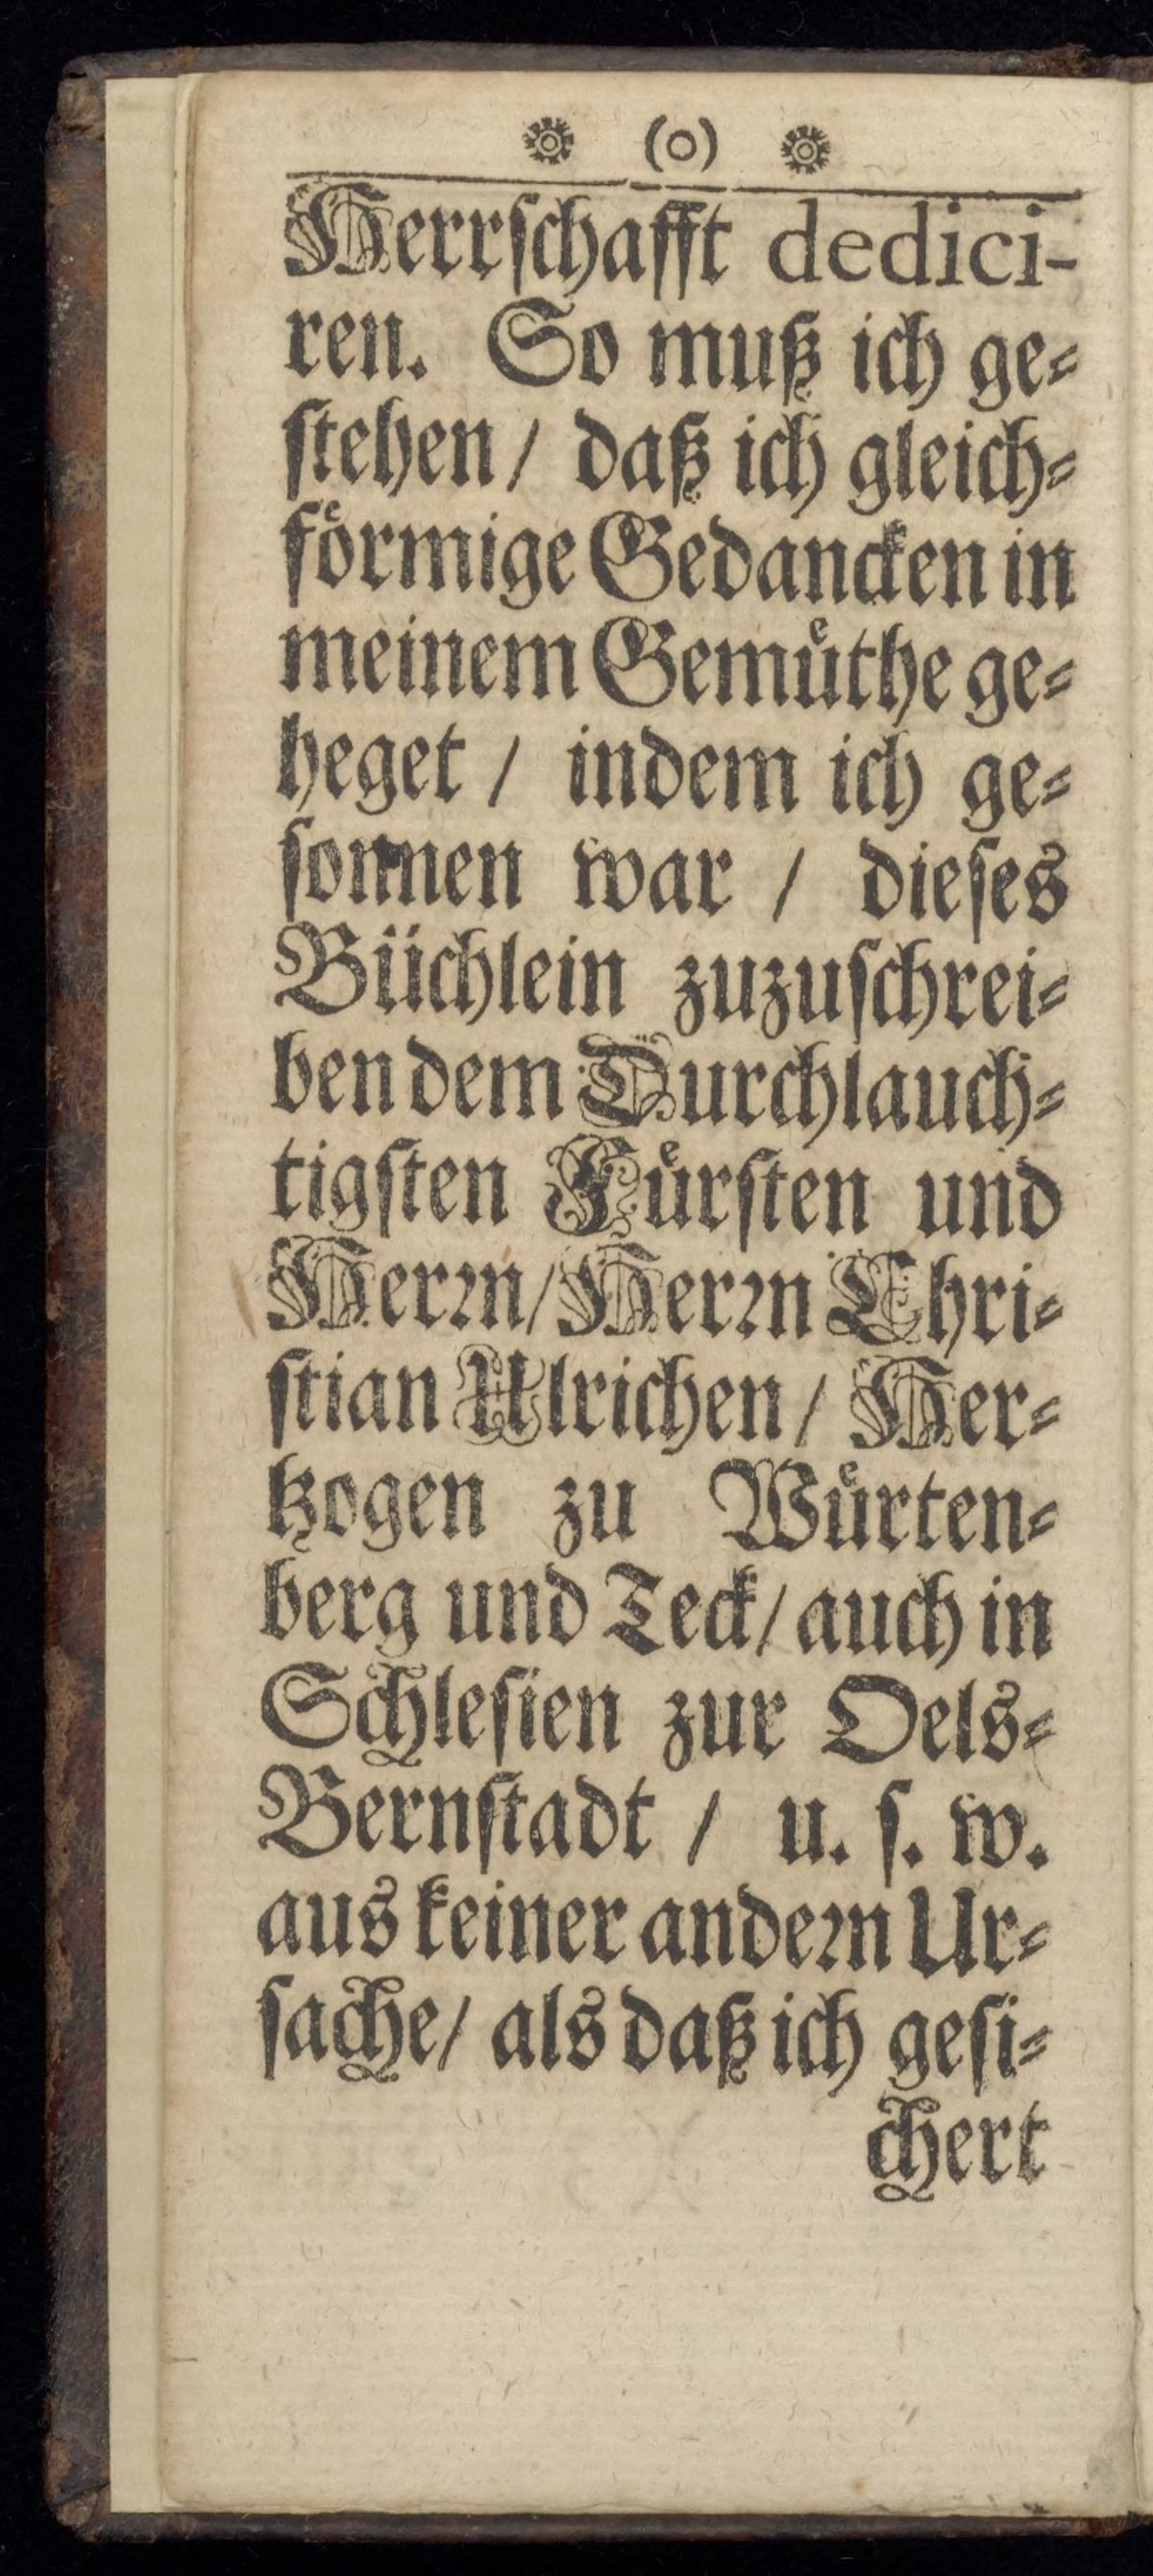 ❁ (o) ❁
Herrſchafft dedici-
ren. So muß ich ge⸗
ſtehen/ daß ich gleich⸗
foͤrmige Gedancken in
meinem Gemuͤthe ge⸗
heget / indem ich ge⸗
ſonnen war / dieſes
Büchlein zuzuſchrei⸗
ben dem Durchlauch⸗
tigſten Fuͤrſten und
Herꝛn/ Herꝛn Chri⸗
ſtian Ulrichen/ Her⸗
tzogen zu Wuͤrten⸗
berg und Teck/ auch in
Schleſien zur Oels⸗
Bernſtadt / u. ſ. w.
aus keiner andeꝛn Ur⸗
ſache/ als daß ich geſi⸗
chert